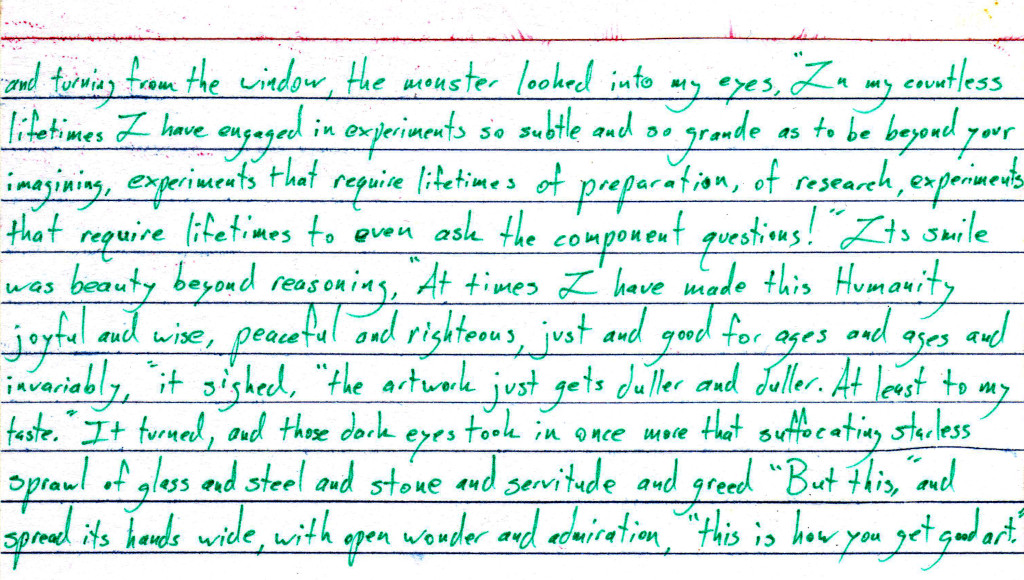 and turning from the window, the monster looked into my eyes, "In my countless
lifetimes I have engaged in experiments so subtle and so grande as to be beyond your
imagining, experiments that require lifetimes of preparation, of research, experiments
that require lifetimes to even ask the component questions!" Its smile
was beauty beyond reasoning, "At times I have made this Humanity
joyful and wise, peaceful and righteous, just and good for ages and ages and
invariably," it sighed, "the artwork just gets duller and duller. At least to my
taste." It turned, and those dark eyes took in once more that suffocating starless
sprawl of glass and steel and stone and servitude and greed "But this," and
spread its hands wide, with open wonder and admiration, "this is how you get good art."